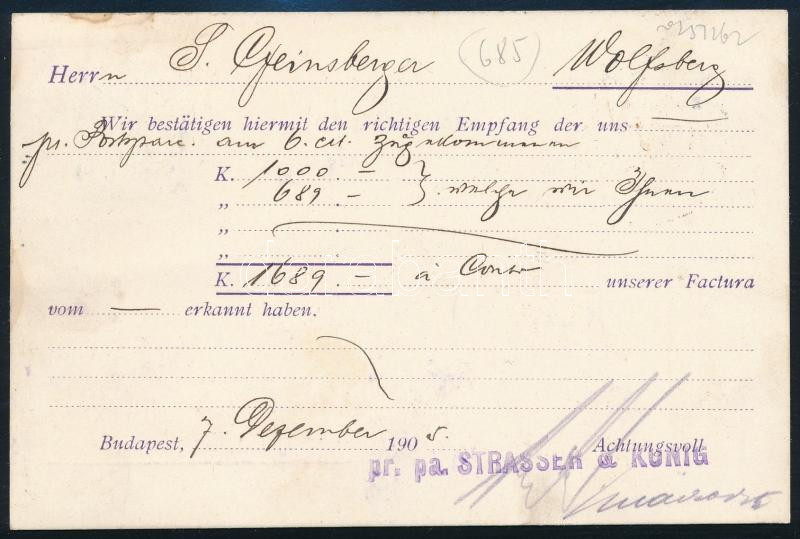 (685)
Herrn S. Gfeinsberger Wolfsberg
Wir bestätigen hiermit den richtigen Empfang der uns —
pr. Postsparc. am 6. ct. zugekommenen
K. 1000. –
„ 689 – } welche wir Ihnen
„
„
K. 1689. – à Conto unserer Factura
vom — erkannt haben.
Budapest, 7. Dezember 1905. Achtungsvoll
pr. pa. STRASSER & KÖNIG